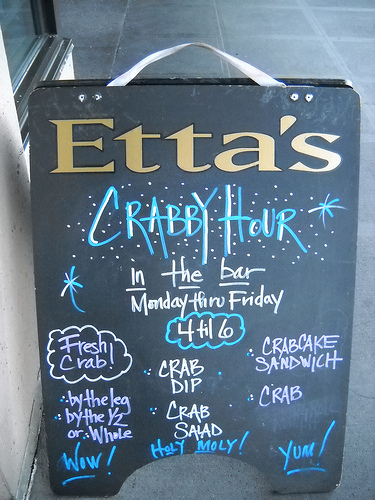 Etta's
CRABBY HOUR
in the bar
Monday thru Friday
4 til 6
Fresh!
Crab!
by the leg
by the 1/2
or Whole
Wow!
CRAB
DIP
CRAB
SALAD
HOLY MOLY!
CRABCAKE
SANDWICH
CRAB
YUM!